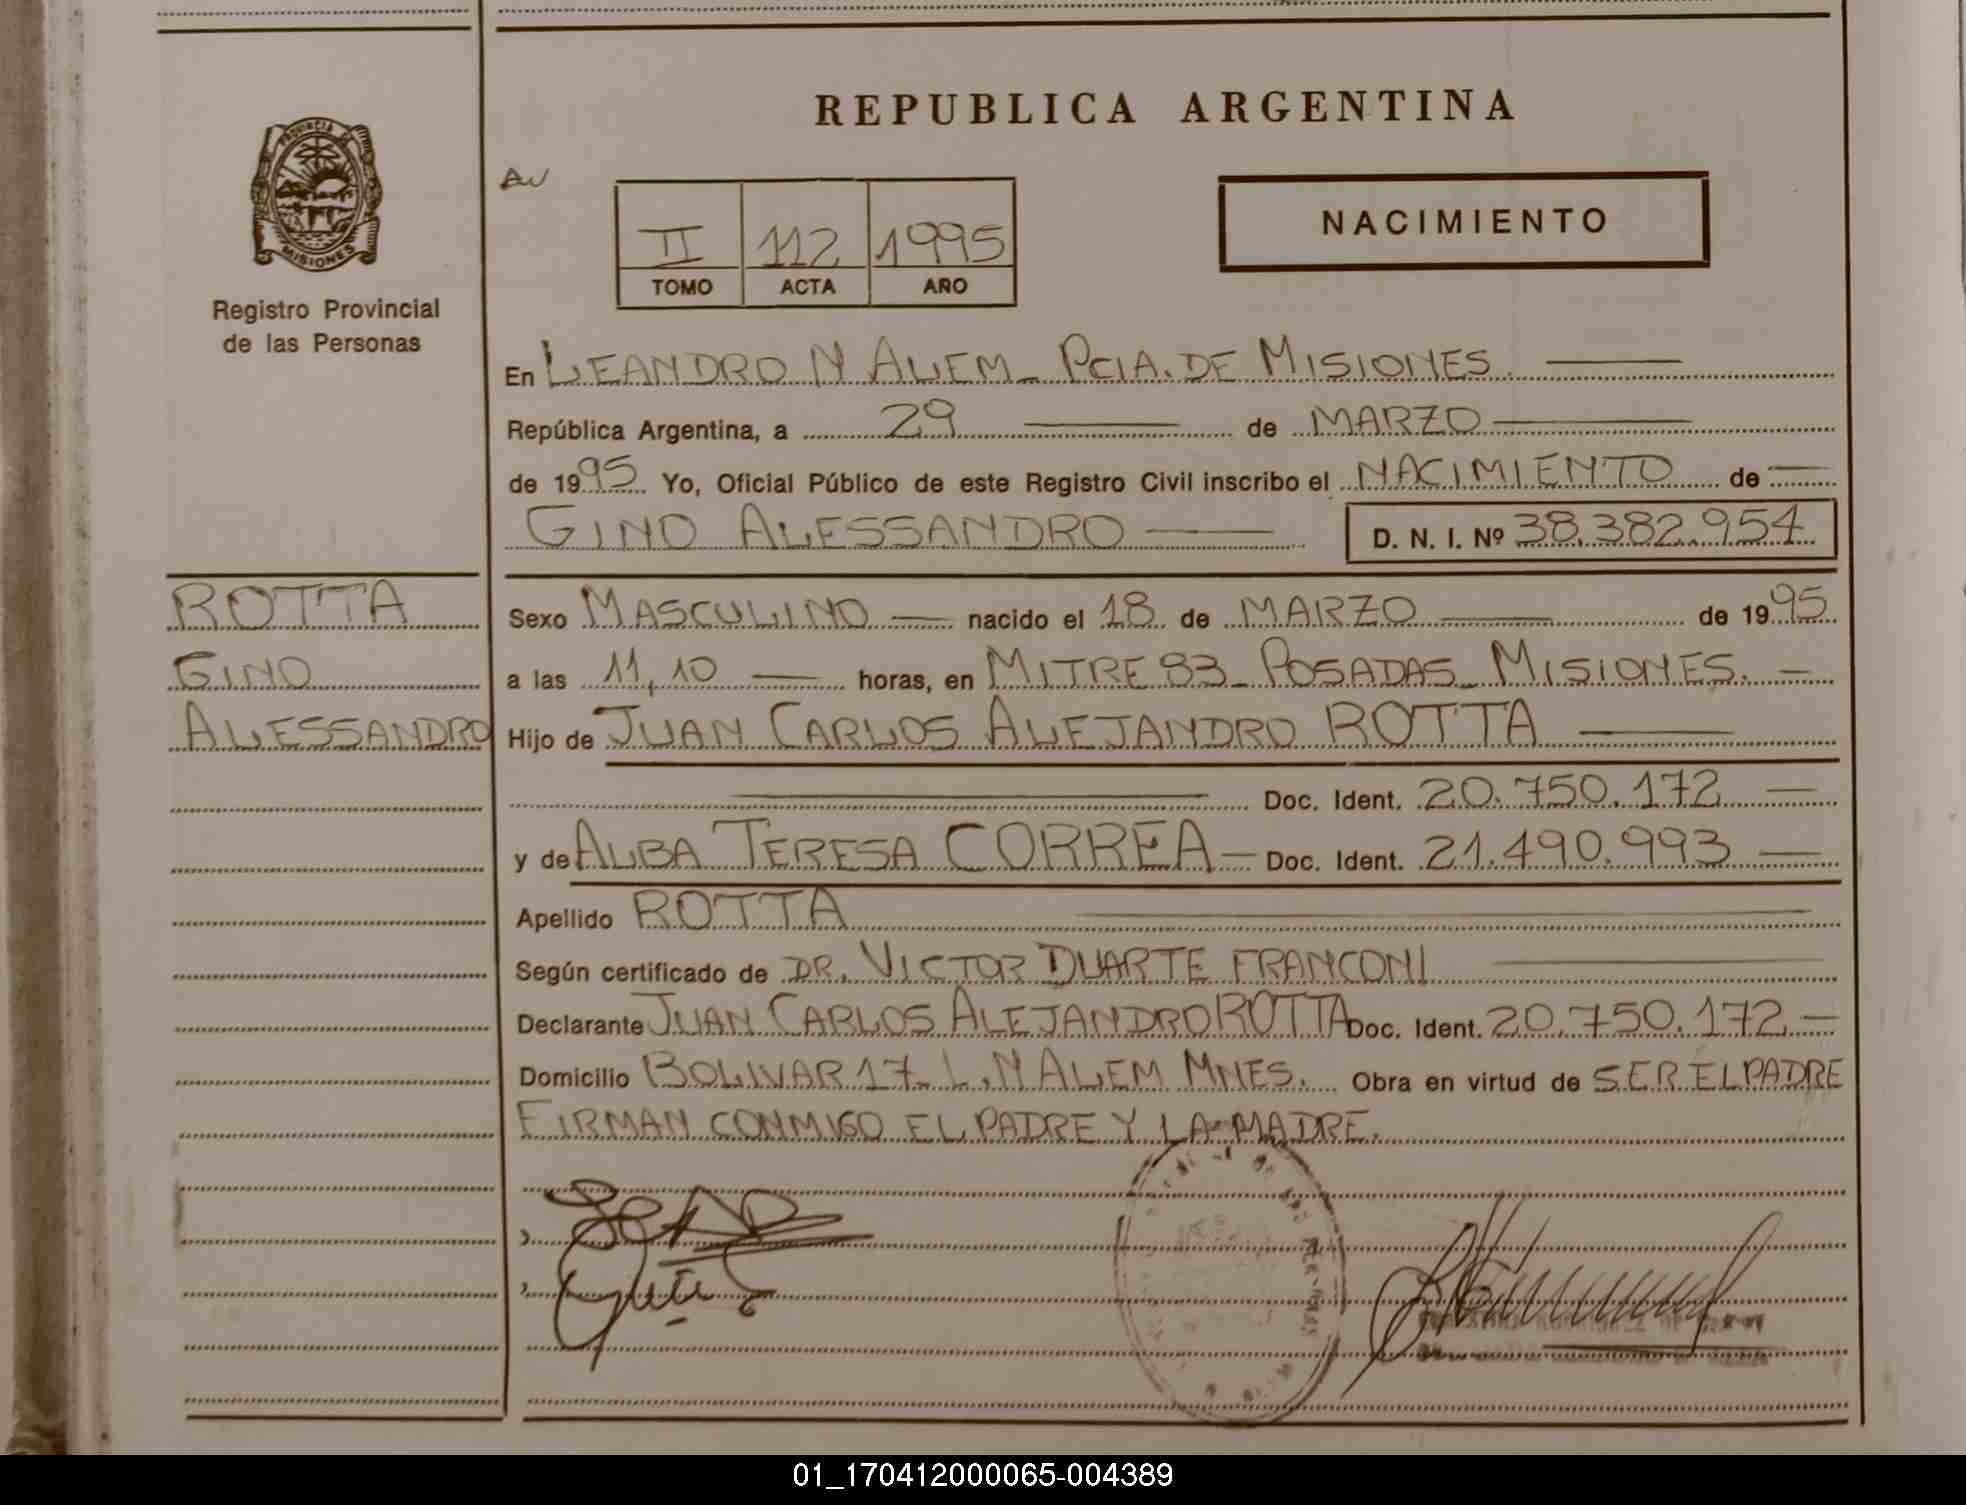 REPUBLICA ARGENTINA
PROVINCIA DE
MISIONES
Registro Provincial
de las Personas
AU
II 112 1995
TOMO ACTA AÑO
NACIMIENTO
En LEANDRO N ALEM_ PCIA. DE MISIONES.
República Argentina, a 29 de MARZO
de 1995 Yo, Oficial Público de este Registro Civil inscribo el NACIMIENTO de
GINO ALESSANDRO D. N. I. Nº 38.382.954
ROTTA
GINO
ALESSANDRO
Sexo MASCULINO nacido el 18 de MARZO de 1995
a las 11,10 horas, en MITRE 83_ POSADAS_ MISIONES.
Hijo de JUAN CARLOS ALEJANDRO ROTTA
Doc. Ident. 20.750.172
y de ALBA TERESA CORREA Doc. Ident. 21.490.993
Apellido ROTTA
Según certificado de DR. VICTOR DUARTE FRANCONI
Declarante JUAN CARLOS ALEJANDRO ROTTA Doc. Ident. 20.750.172
Domicilio BOLIVAR 17_ L.N ALEM MNES. Obra en virtud de SER EL PADRE
FIRMAN CONMIGO EL PADRE Y LA MADRE.
01_170412000065-004389